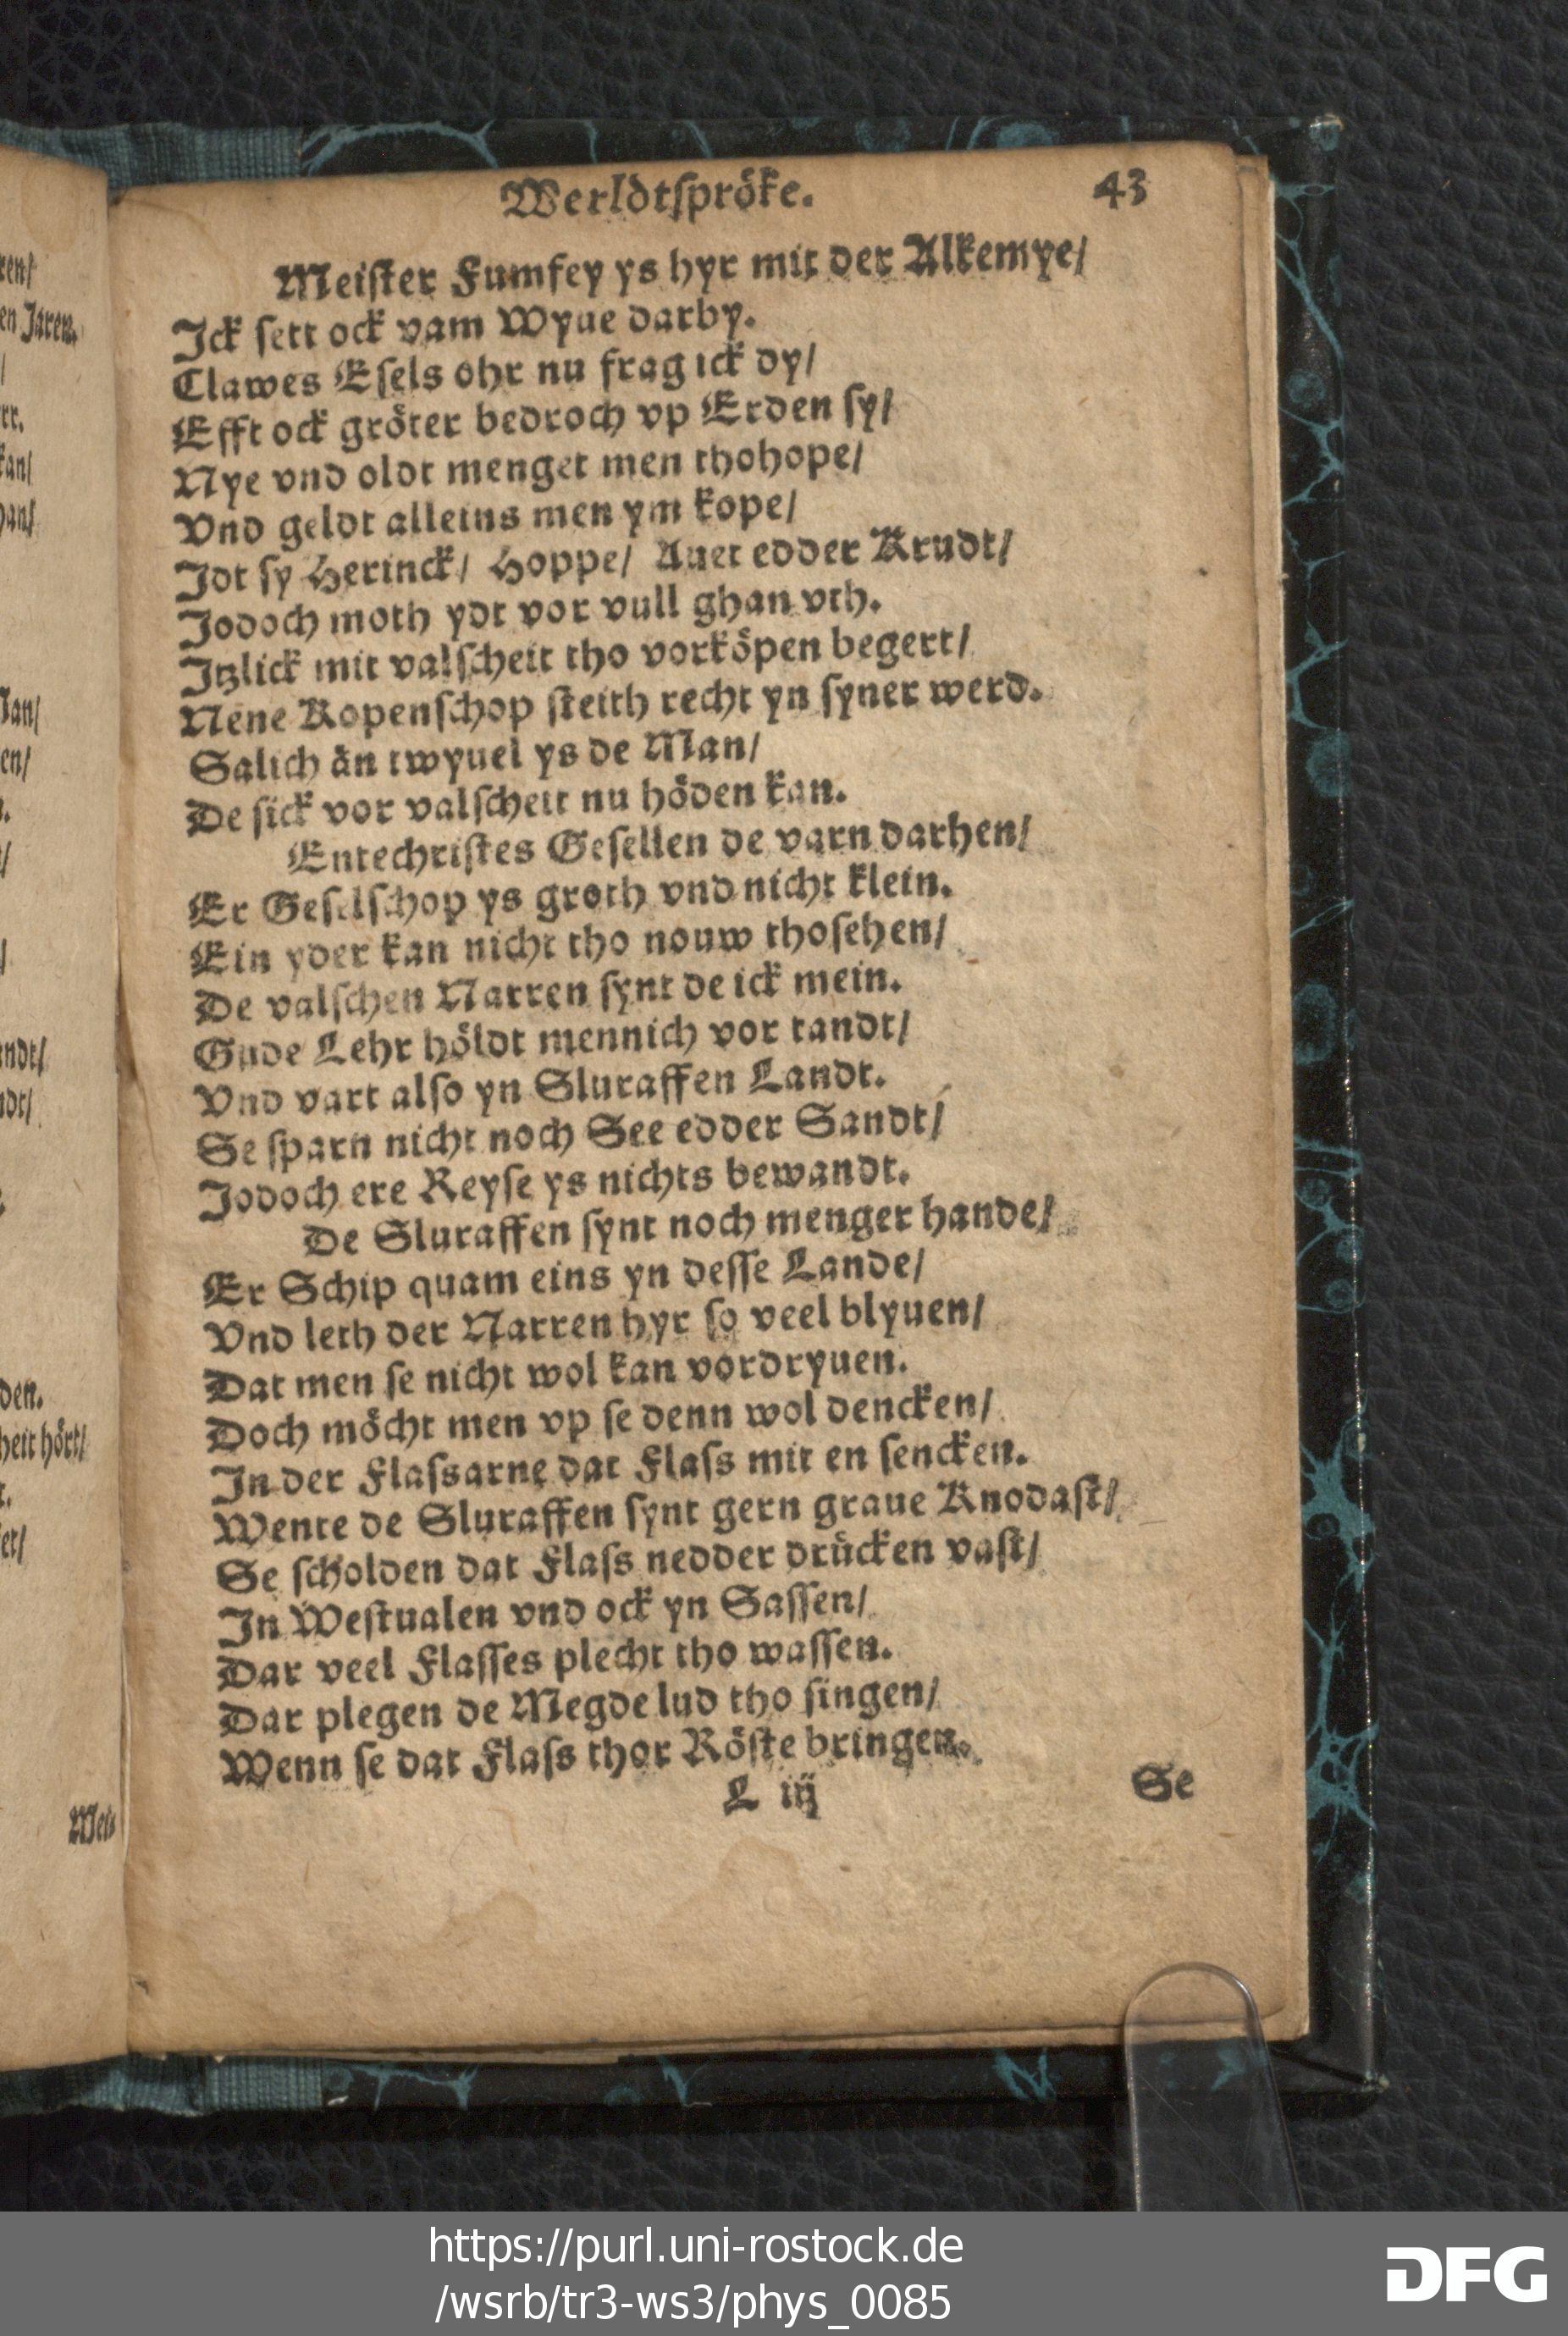 Werldtspröke. 43
Meister Fumfey ys hyr mit der Alkemye/
Ick sett ock vam Wyue darby.
Clawes Esels ohr nu frag ick dy/
Efft ock gröter bedroch vp Erden sy/
Nye vnd oldt menget men thohope/
Vnd geldt alleins men ym kope/
Idt sy Herinck/ Hoppe/ Auet edder Krudt/
Jodoch moth ydt vor vull ghan vth.
Itzlick mit valscheit tho vorköpen begert/
Nene Kopenschop steith recht yn syner werd.
Salich än twyuel ys de Man/
De sick vor valscheit nu höden kan.
Entechristes Gesellen de varn darhen/
Er Geselschop ys groth vnd nicht klein.
Ein yder kan nicht tho nouw thosehen/
De valschen Narren synt de ick mein.
Gude Lehr höldt mennich vor tandt/
Vnd vart also yn Sluraffen Landt.
Se sparn nicht noch See edder Sandt/
Jodoch ere Reyse ys nichts bewandt.
De Sluraffen synt noch menger hande/
Er Schip quam eins yn desse Lande/
Vnd leth der Narren hyr so veel blyuen/
Dat men se nicht wol kan vordryuen.
Doch möcht men vp se denn wol dencken/
In der Flassarne dat Flass mit en sencken.
Wente de Sluraffen synt gern graue Knodast/
Se scholden dat Flass nedder drücken vast/
In Westualen vnd ock yn Sassen/
Dar veel Flasses plecht tho wassen.
Dar plegen de Megde lud tho singen/
Wenn se dat Flass thor Röste bringen.
L iij Se
ren/
en Jaren.
/
rr.
kan/
Jan/
en/
ndt/
dt/
den.
heit hört/
et/
https://purl.uni-rostock.de
/wsrb/tr3-ws3/phys_0085
DFG